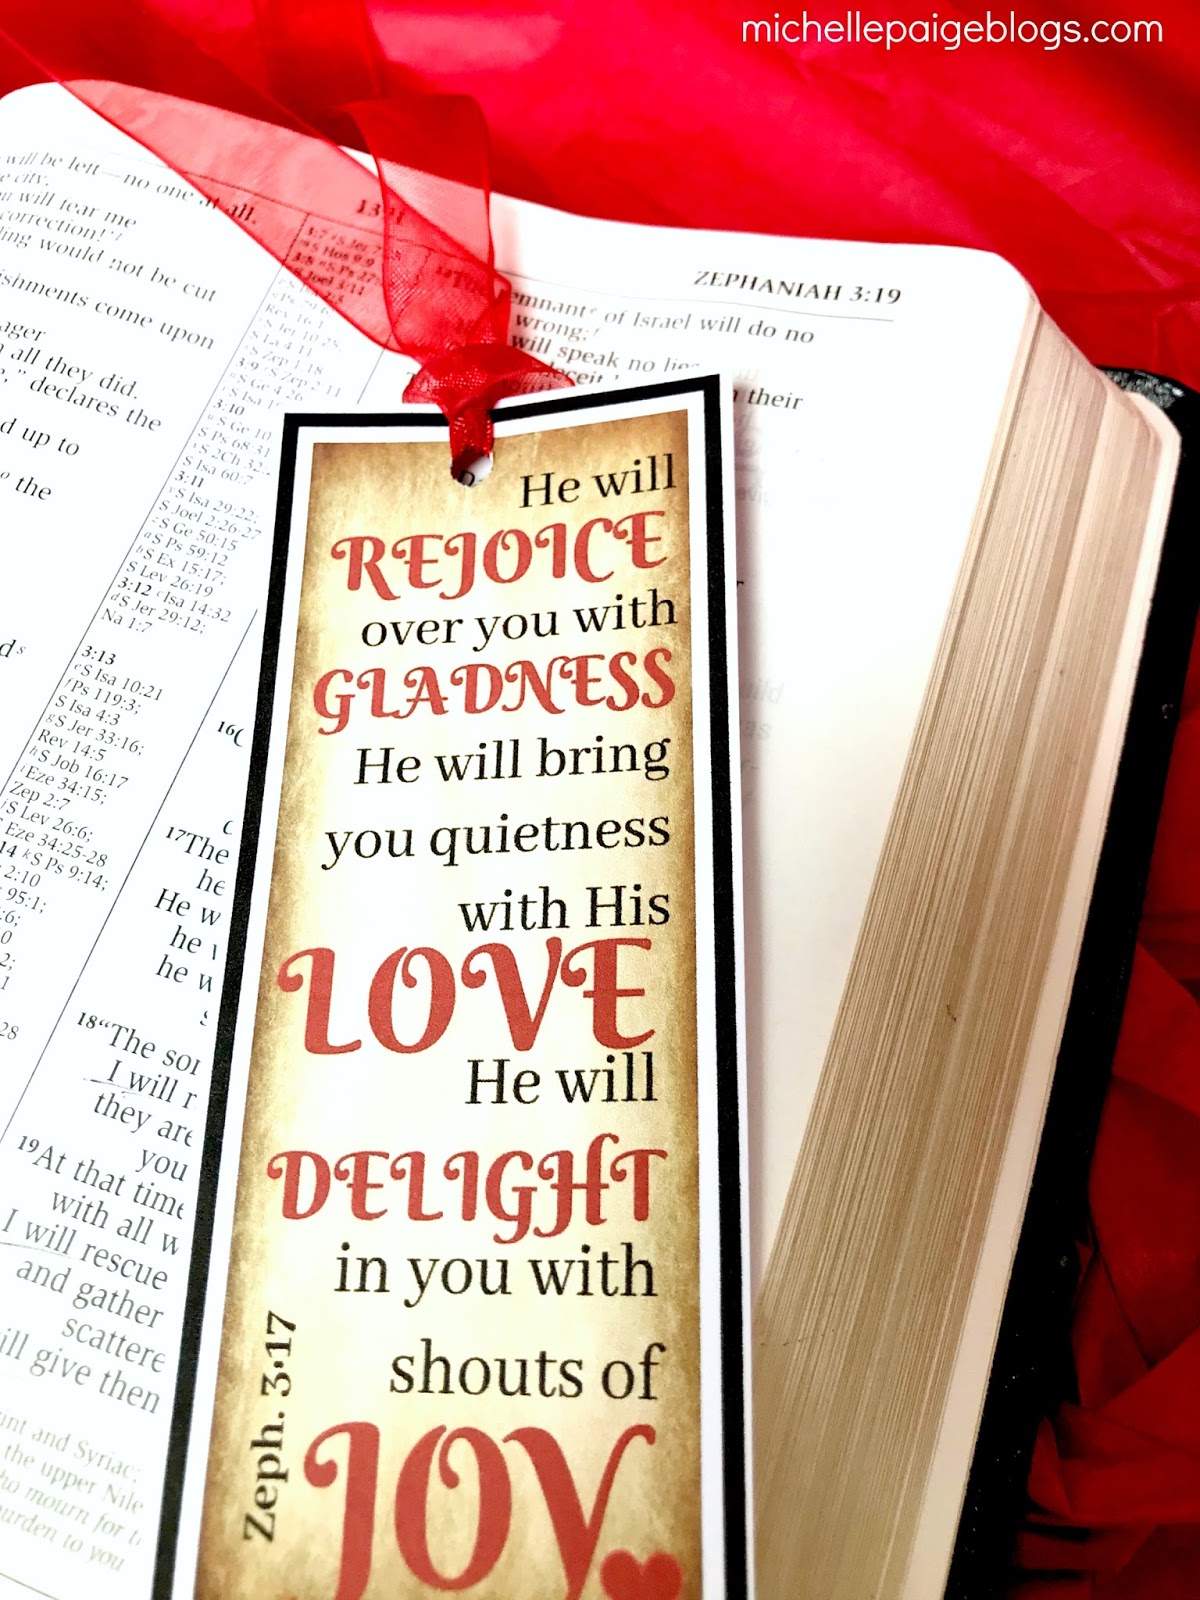 michellepaigeblogs.com
will be left—no one at all.
will tear me
correction!"
would not be cut
come upon
all they did.
declares the
d up to
the
S Ge 10
S Ps 68:31
S 2Ch 32
S Isa 60:7
3:11
S Isa 29:22;
S Joel 2:26-27
S Ge 50:15
S Ps 59:12
S Ex 15:17;
S Lev 26:19
3:12 Isa 14:32
S Jer 29:12;
Na 1:7
3:13
S Isa 10:21
Ps 119:3;
S Isa 4:3
S Jer 33:16;
Rev 14:5
S Job 16:17
Eze 34:15;
Zep 2:7
S Lev 26:6;
Eze 34:25-28
14 S Ps 9:14;
2:10
95:1;
16
17The
he
He w
he
he w
18"The
I will r
they are
you
19At that time
with all w
I will rescue
and gather
scattere
will give then
and Syriac;
the upper Nile
mourn for
burden to you
ZEPHANIAH 3:19
of Israel will do no
wrong;
will speak no
their
He will
REJOICE
over you with
GLADNESS
He will bring
you quietness
with His
LOVE
He will
DELIGHT
in you with
shouts of
JOY
Zeph. 3:17